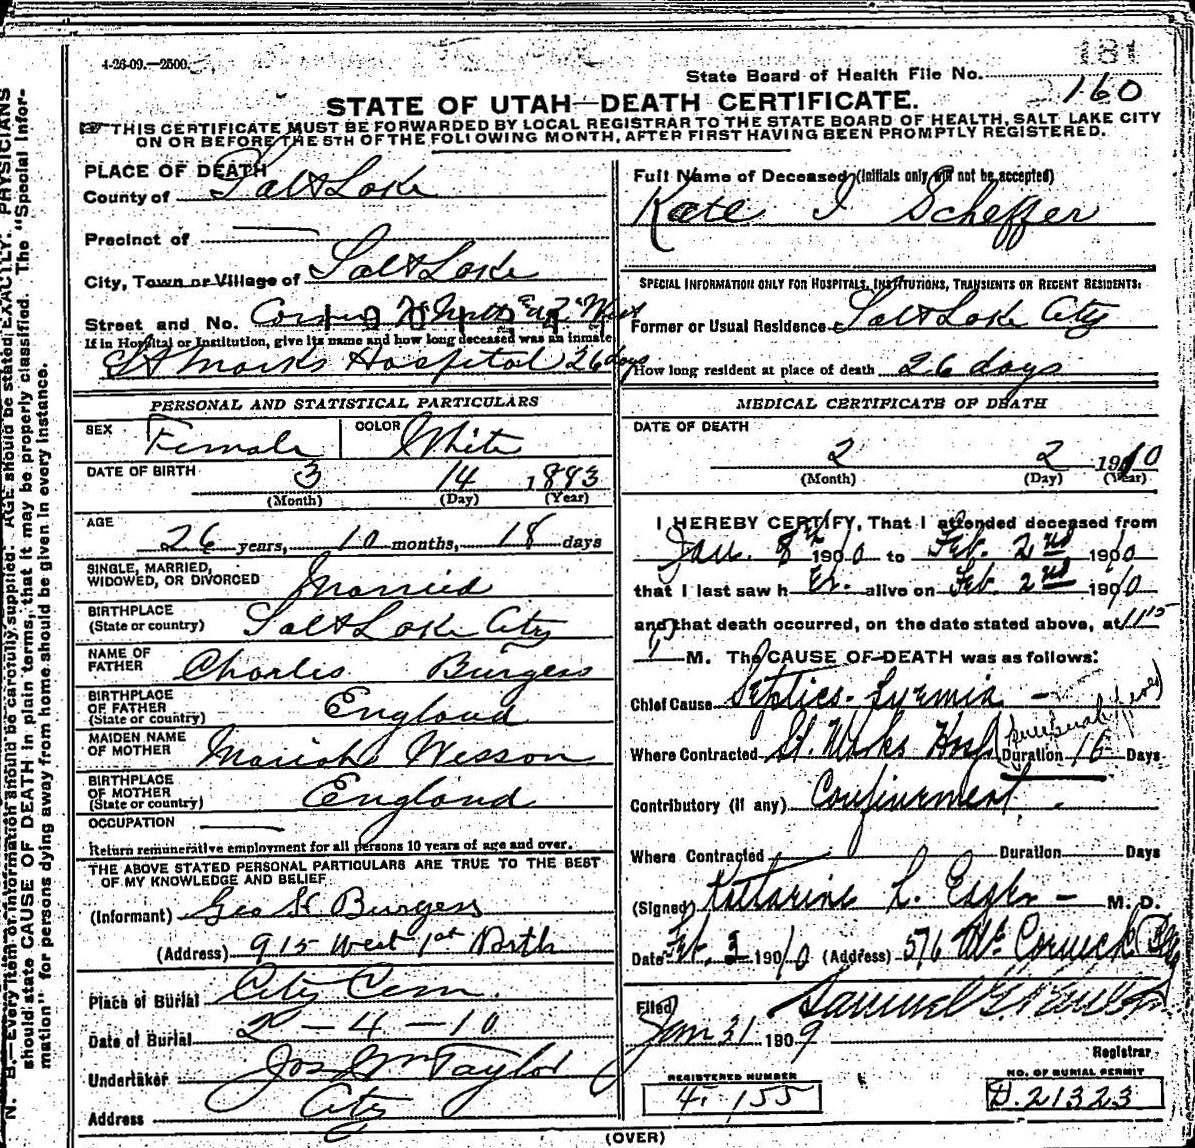 4-26-09.—2500.
181
State Board of Health File No. 160
STATE OF UTAH—DEATH CERTIFICATE.
THIS CERTIFICATE MUST BE FORWARDED BY LOCAL REGISTRAR TO THE STATE BOARD OF HEALTH, SALT LAKE CITY
ON OR BEFORE THE 5TH OF THE FOLLOWING MONTH, AFTER FIRST HAVING BEEN PROMPTLY REGISTERED.
PLACE OF DEATH
County of Salt Lake
Precinct of
City, Town or Village of Salt Lake
Street and No. Corner 7th North & 2 West
If in Hospital or Institution, give its name and how long deceased was an inmate
St Marks Hospital 26 days
PERSONAL AND STATISTICAL PARTICULARS
SEX Female COLOR White
DATE OF BIRTH 3 14 1883
(Month) (Day) (Year)
AGE
26 years, 10 months, 18 days
SINGLE, MARRIED,
WIDOWED, OR DIVORCED Married
BIRTHPLACE
(State or country) Salt Lake City
NAME OF
FATHER Charlis Burgess
BIRTHPLACE
OF FATHER
(State or country) England
MAIDEN NAME
OF MOTHER Mariah Wesson
BIRTHPLACE
OF MOTHER
(State or country) England
OCCUPATION
Return remunerative employment for all persons 10 years of age and over.
THE ABOVE STATED PERSONAL PARTICULARS ARE TRUE TO THE BEST
OF MY KNOWLEDGE AND BELIEF
(Informant) Geo H Burgess
(Address) 915 West 1st North
Place of Burial City Cem.
Date of Burial 2-4-10
Undertaker Jos Wm Taylor
Address City
Full Name of Deceased (Initials only will not be accepted)
Kate I Scheffer
SPECIAL INFORMATION ONLY FOR HOSPITALS, INSTITUTIONS, TRANSIENTS OR RECENT RESIDENTS:
Former or Usual Residence Salt Lake City
How long resident at place of death 26 days
MEDICAL CERTIFICATE OF DEATH
DATE OF DEATH
2 2 1910
(Month) (Day) (Year)
I HEREBY CERTIFY, That I attended deceased from
Jan. 8th 1910 to Feb. 2nd 1910
that I last saw h er. alive on Feb 2nd 1910
and that death occurred, on the date stated above, at 11 15
M. The CAUSE OF DEATH was as follows:
Chief Cause Septico-Pyemia
(puerperal fever)
Where Contracted St. Marks Hosp Duration 16 Days
Contributory (if any) Confinement.
Where Contracted Duration Days
(Signed) Katharine L. M. D.
Date Feb. 3 1910 (Address) 576 McCornick Blg
Filed Samuel G.
Jan 31 1909
Registrar
REGISTERED NUMBER
4-155
NO. OF BURIAL PERMIT
D.21323
(OVER)
N. B.—Every item of information should be carefully supplied. AGE should be stated EXACTLY. PHYSICIANS
should state CAUSE OF DEATH in plain terms, that it may be properly classified. The "Special Infor-
mation" for persons dying away from home should be given in every instance.